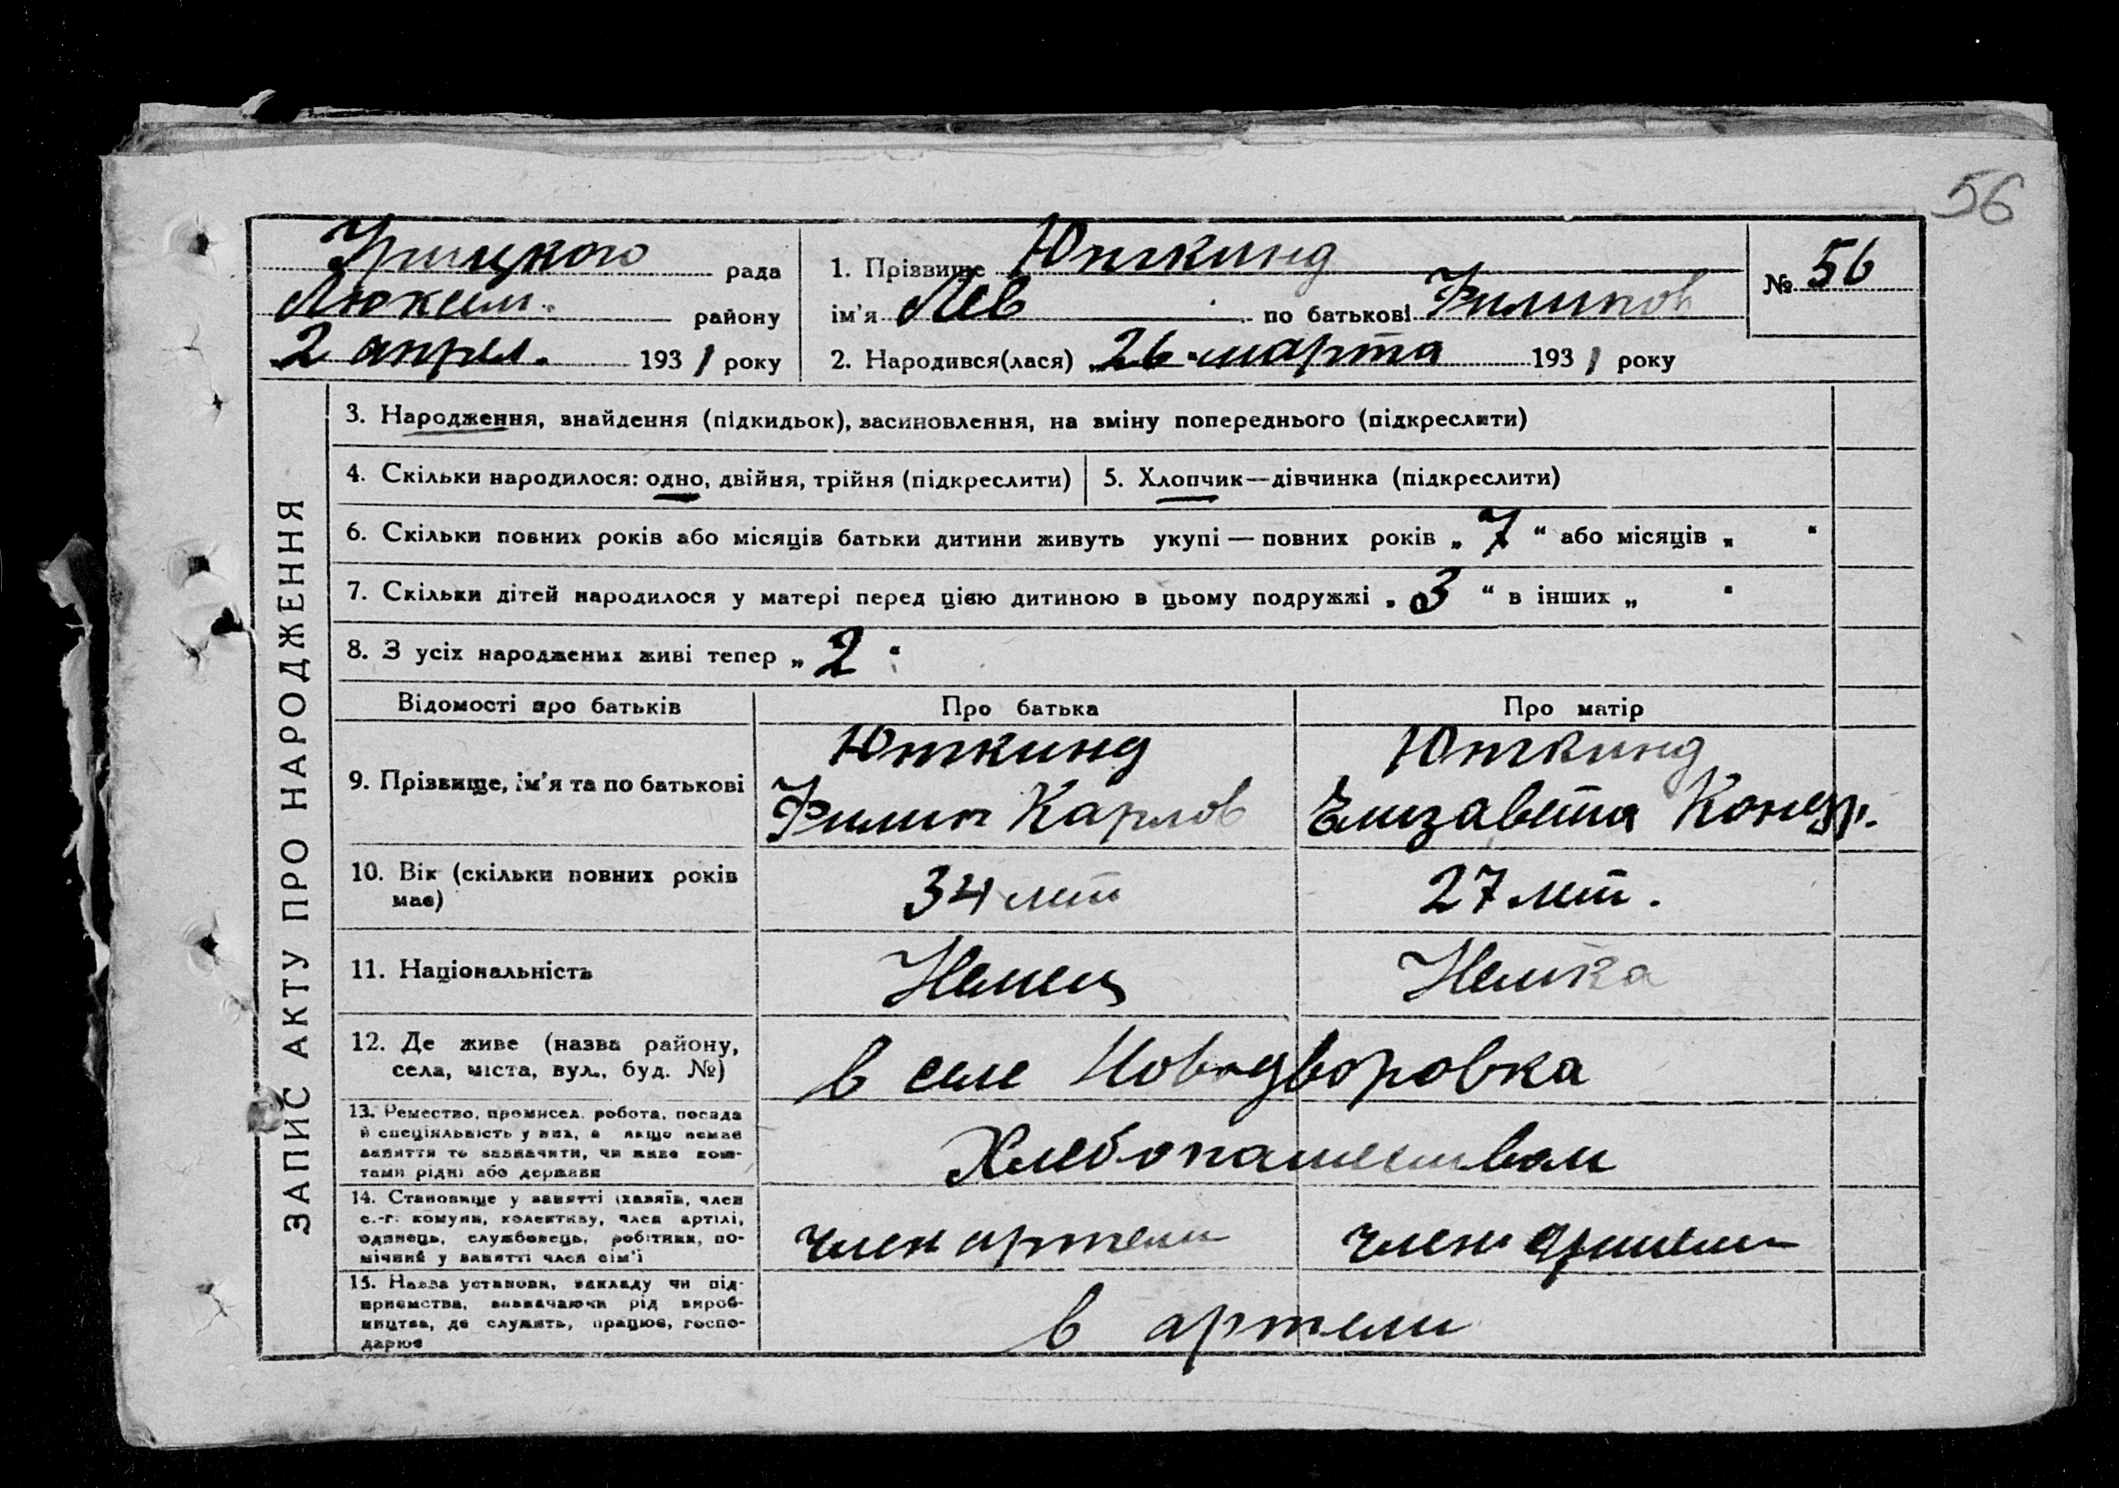 56
Урицкого рада
Люксем. району
2 апрел. 1931 року
1. Прізвище Юткинд
ім'я Лев по батькові Филипов
2. Народився(лася) „26" марта 1931 року
№ 56
ЗАПИС АКТУ ПРО НАРОДЖЕННЯ
3. Народження, знайдення (підкидьок), засиновлення, на зміну попереднього (підкреслити)
4. Скільки народилося: одно, двійня, трійня (підкреслити)
5. Хлопчик—дівчинка (підкреслити)
6. Скільки повних років або місяців батьки дитини живуть укупі — повних років „ 7 “ або місяців „ “
7. Скільки дітей народилося у матері перед цією дитиною в цьому подружжі „ 3 “ в інших „ “
8. З усіх народжених живі тепер „ 2 “
Відомості про батьків
Про батька
Про матір
9. Прізвище, ім'я та по батькові
Юткинд
Филип Карлов
Юткинд
Елизавета Кондр.
10. Вік (скільки повних років
має)
34 лет
27 лет.
11. Національність
Немец
Немка
12. Де живе (назва району,
села, міста, вул., буд. №)
в селе Новодворовка
13. Ремество, промисел, робота, посада
й спеціяльність у них, а якщо немає
заняття то зазначити, чи живе кош-
тами рідні або держави
Хлебопашеством
14. Становище у занятті (хазяїн, член
с.-г. комуни, колективу, член артілі,
одинець, службовець, робітник, по-
мічний у занятті член сім'ї
член артели
член артели
15. Назва установи, закладу чи під-
приємства, зазначаючи рід вироб-
ництва, де служить, працює, госпо-
дарює
в артели